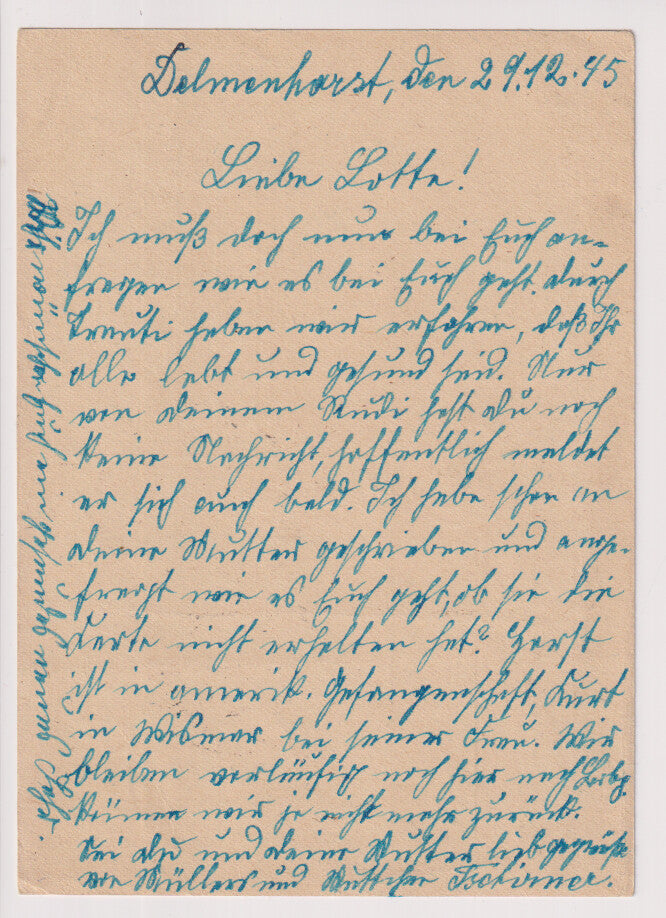 Delmenhorst, den 29.12.45
Liebe Lotte!
Ich muß doch nur bei Euch an-
fragen wie es bei Euch geht, durch
Trauti haben wir erfahren, daß Ihr
alle lebt und gesund seid. Nur
von deinem Rudi hast du noch
keine Nachricht, hoffentlich meldet
er sich auch bald. Ich habe schon an
deine Mutter geschrieben und ange-
fragt wie es Euch geht, ob sie die
Karte nicht erhalten hat? Horst
ist in amerik. Gefangenschaft, Kurt
in Wismar bei seiner Frau. Wir
bleiben vorläufig noch hier nach
können wir ja nicht mehr zurück.
Sei du und deine Mutter lieb gegrüßt
von Müllers und Muttchen